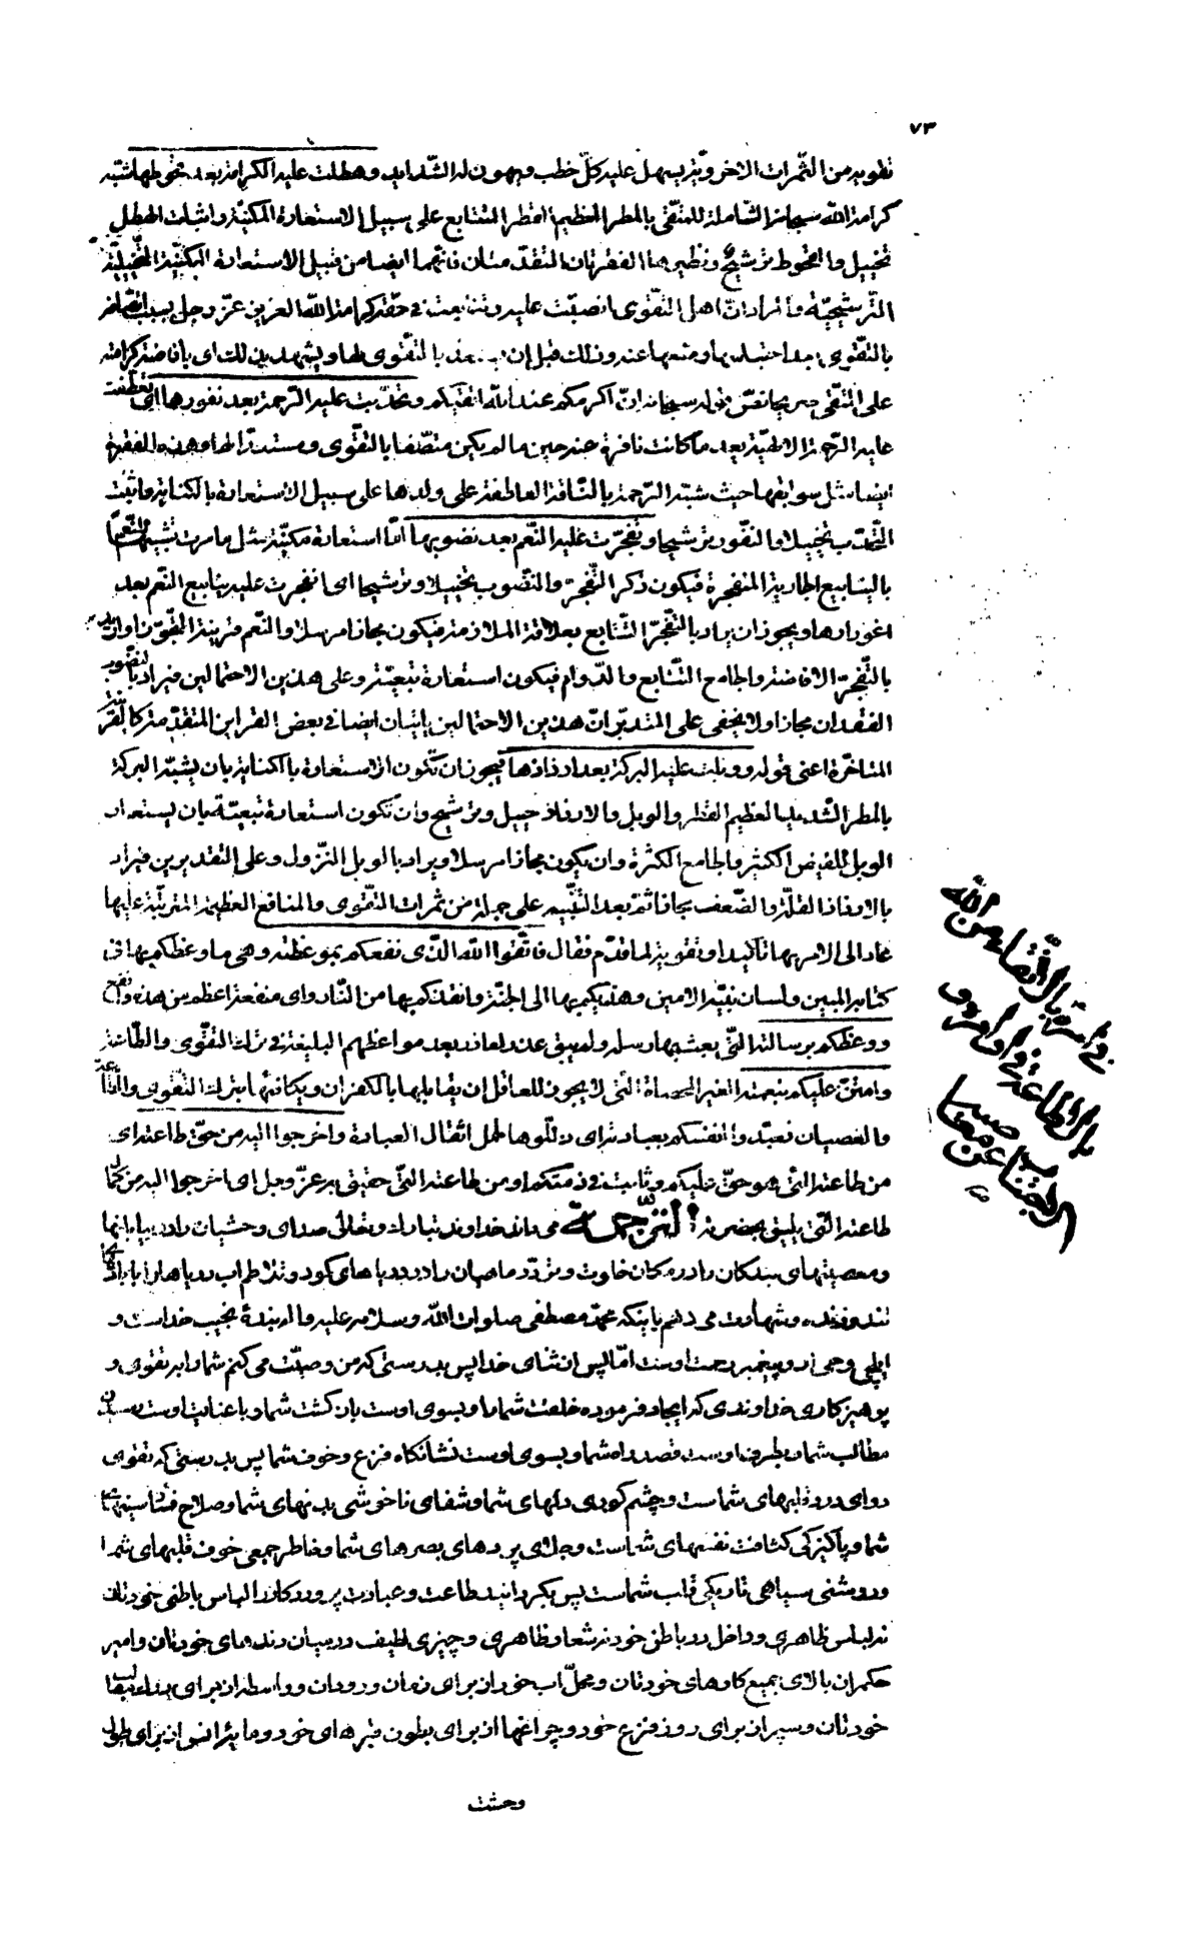 ٧٣
تطويه من الثمرات الاخرويّة يسهل عليه كلّ خطب ويهون له الشّدايد وهطلت عليه الكرامة بعد قحوطها شبّه
كرامة اللّه سبحانه الشّاملة للمتّقى بالمطر العظيم القطر المتتابع على سبيل الاستعارة المكنيّة واثبات الهطل
تخييل والقحوط ترشيح ونظير هما الفقرتان المتقدّمتان فانّهما ايضا من قبيل الاستعارة المكنيّة التّخييليّة
التّرشيحيّة والمراد انّ اهل التّقوى انصبّت عليه وتتابعت في حقّه كرامة اللّه العزيز عزّ وجلّ بسبب اتّصافه
بالتّقوى بعد احتباسها ومنعها عنه وذلك قبل ان يستعدّ بالتّقوى لها ويشهد بذلك اى بافاضة كرامته
على المتّقى صريحا نصّ قوله سبحانه انّ اكرمكم عند اللّه اتقيكم وتحدّبت عليه الرّحمة بعد نفورها اى تعطّفت
عليه الرّحمة الالهيّة بعد ما كانت نافرة عنه حين ما لم يكن متّصفا بالتّقوى ومستعدّا لها وهذه الفقرة
ايضا مثل سوابقها حيث شبّه الرّحمة بالنّاقة العاطفة على ولدها على سبيل الاستعارة بالكناية واثبت
التّحدّب تخييلا والنّفور ترشيحا وتفجّرت عليه النّعم بعد نضوبها امّا استعارة مكنيّة مثل ما مرت تشبيها للنّعم
بالينابيع الجارية المنفجرة فيكون ذكر التّفجّر والنّضوب تخييلا وترشيحا اى انفجرت عليه ينابيع النّعم بعد
اغورارها ويجوز ان يراد بالتّفجّر التّتابع بعلاقة الملازمة فيكون مجازا مرسلا والنّعم قرينة التّجوّز او ان يراد
بالتّفجّر الافاضة والجامع التّتابع والدّوام فيكون استعارة تبعيّة وعلى هذين الاحتمالين فيراد بالنّضوب
الفقدان مجازا ولا يخفى على المتدبّر انّ هذين الاحتمالين ياتيان ايضا في بعض القراين المتقدّمة كالقرينة
المتاخّرة اعنى قوله ووبلت عليه البركة بعد ارذاذها فيجوز ان تكون الاستعارة بالكناية بان يشبّه البركة
بالمطر الشّديد العظيم القطر والوبل والارذاذ تخييل وترشيح وان تكون استعارة تبعيّة بان يستعار
الوبل للفيض الكثير والجامع الكثرة وان يكون مجازا مرسلا ويراد بالوبل النّزول وعلى التقديرين فيراد
بالارذاذ القلّة والضّعف مجازا ثمّ بعد التّنبيه على جملة من ثمرات التّقوى والمنافع العظيمة المترتّبة عليها
عاد الى الامر بها تاكيدا وتقوية لما قدّم فقال فاتّقوا اللّه الّذى نفعكم بموعظته وهى ما وعظكم بها في
كتابه المبين ولسان نبيّه الامين وهديكم بها الى الجنّة وانقذكم بها من النّار واى منفعة اعظم من هذه وانفع
ووعظكم برسالته الّتى بعث بها رسله ولم يبق عذر لعاذر بعد مواعظهم البليغة في ترك التّقوى والطّاعة
وامتنّ عليكم بنعمته الغير المحصاة الّتى لا يجوز للعاقل ان يقابلها بالكفران ويكافئها بترك التّقوى والطّاعة
والعصيان فعبّدوا انفسكم بعبادته اى ذلّلوها لحمل اثقال العبادة واخرجوا اليه من حقّ طاعته اى
من طاعته الّتى هو حقّ عليكم وثابت في ذمّتكم او من طاعته الّتى حقيق به عزّ وجل اى اخرجوا اليه من كمال
طاعته الّتى يليق بحضرته الترجمة مى داند خداوند تبارك وتعالى صداى وحشيان را در بيابانها
ومعصيتهاى بندكان را در مكان خلوت وتردّد ماهيان را در درياهاى كود وتلاطم اب درياها را با بادهاى
تند وزنده وشهادت مى دهم باينكه محمّد مصطفى صلوات اللّه وسلامه عليه واله بندۀ نجيب خداست و
ايلچى وحى او وپيغمبر رحمت اوست امّا پس از ثناى خدا پس بدرستى كه من وصيّت مى كنم شما را به تقوى و
پرهيزكارى خداوندى كه ايجاد فرموده خلقت شما را وبسوى اوست بازكشت شما وبا عنايت اوست رسيدن
مطالب شما وبطرف اوست قصد راه شما وبسوى اوست نشانكاه فزع وخوف شما پس بدرستى كه تقوى
دواى درد قلبهاى شماست وچشم كورى دلهاى شما وشفاى ناخوشى بدنهاى شما وصلاح فساد سينهاى
شما وپاكيزكى كثافت نفسهاى شماست وجلاى پردهاى بصرهاى شما وخاطر جمعى خوف قلبهاى شما
وروشنى سياهى تاريكى قلب شماست پس بكردانيد طاعت وعبادت پروردكار را لباس باطنى خودتان
نه لباس ظاهرى وداخل در باطن خود نه شعار ظاهرى وچيزى لطيف در ميان دندهاى خودتان وامير
حكمران بالاى جميع كارهاى خودتان ومحلّ اب خور از براى زمان ورودتان وواسطه از براى مطالب
خودتان وسپر از براى روز فزع خود وچراغها از براى بطون قبرهاى خود ومايۀ انس از براى طول
وحشت
في امره بالاتّقاء من اللّه
بالطاعة في اوامره و
الاجتناب عن معاصيه